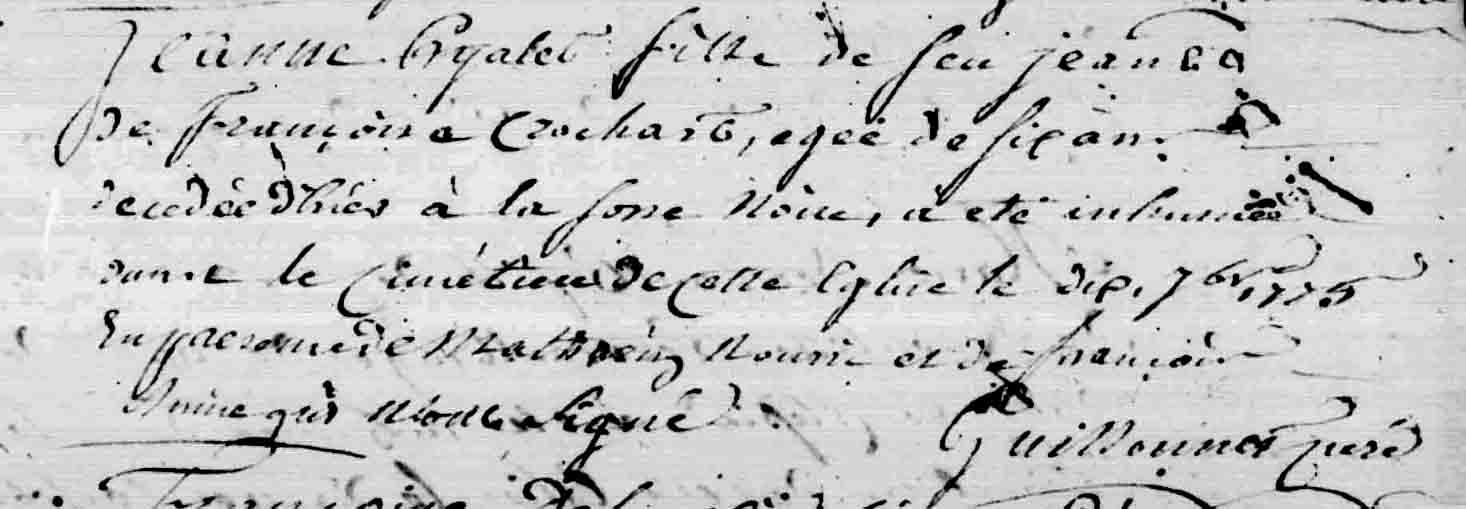 Jeanne fille de feu jean et
de françoise Crochart, agée de six ans
decedée d'hier à la fosse Noire, a eté inhumée
dans le Cimétiere de cette Eglise le dix, 7bre 1775
En presence de Mathurin et de françois
qui n'ont signé
Guillonnet curé